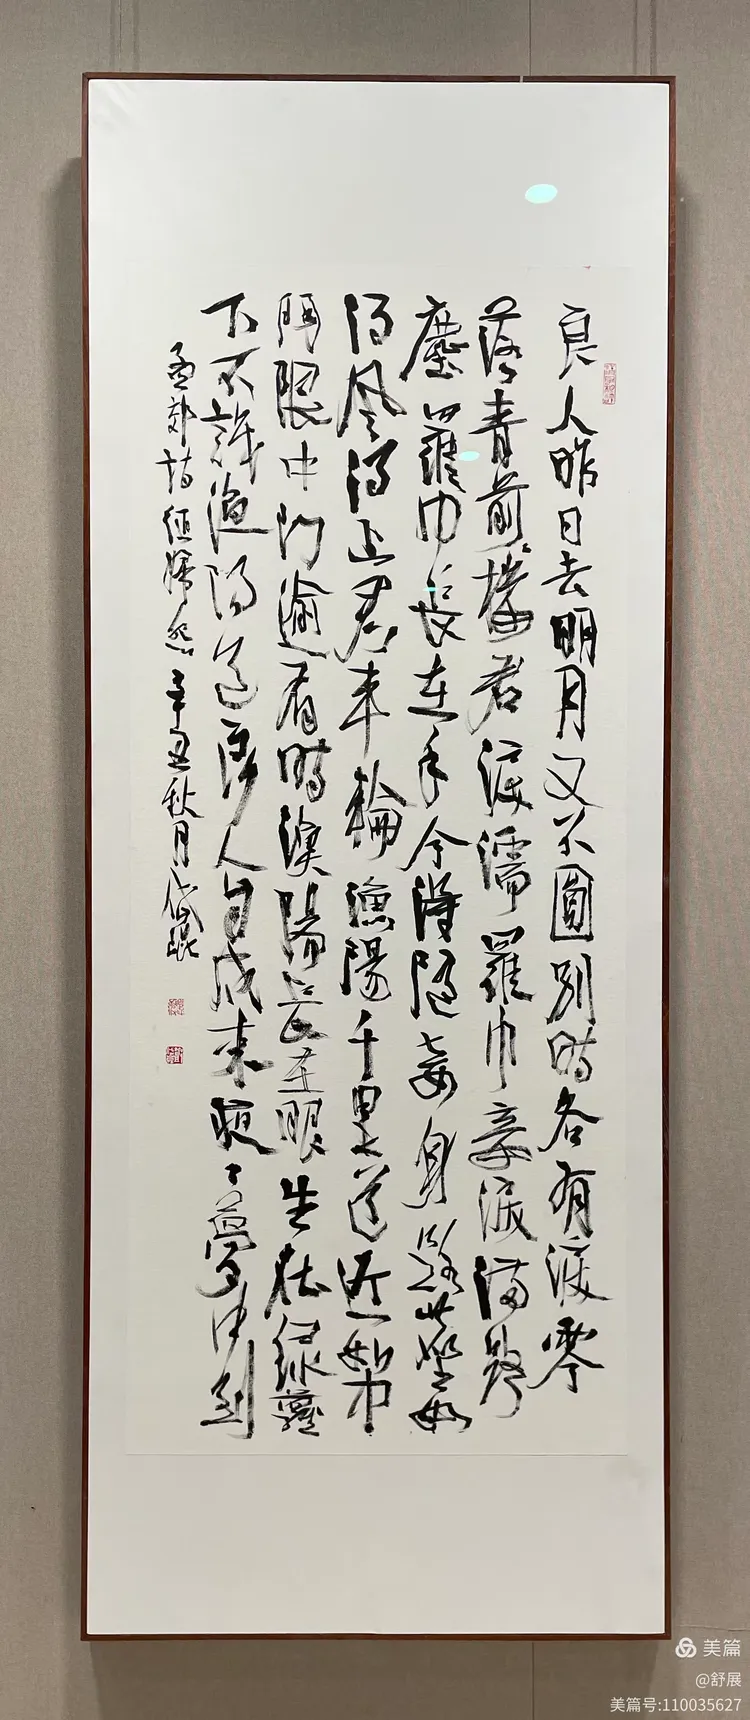 良人昨日去明月又不圓別時各有淚零
落青前樓君淚濡羅巾妾淚滿路
塵羅巾長在手今得隨妾身路塵如
得風得上君車輪漁陽千里道近如中
門限中門逾有時漁陽長在眼生在綠蘿
下不識漁陽道良人自戍來夜々夢中到
孟郊詩征婦怨辛丑秋月
美篇
@舒展
美篇号:110035627